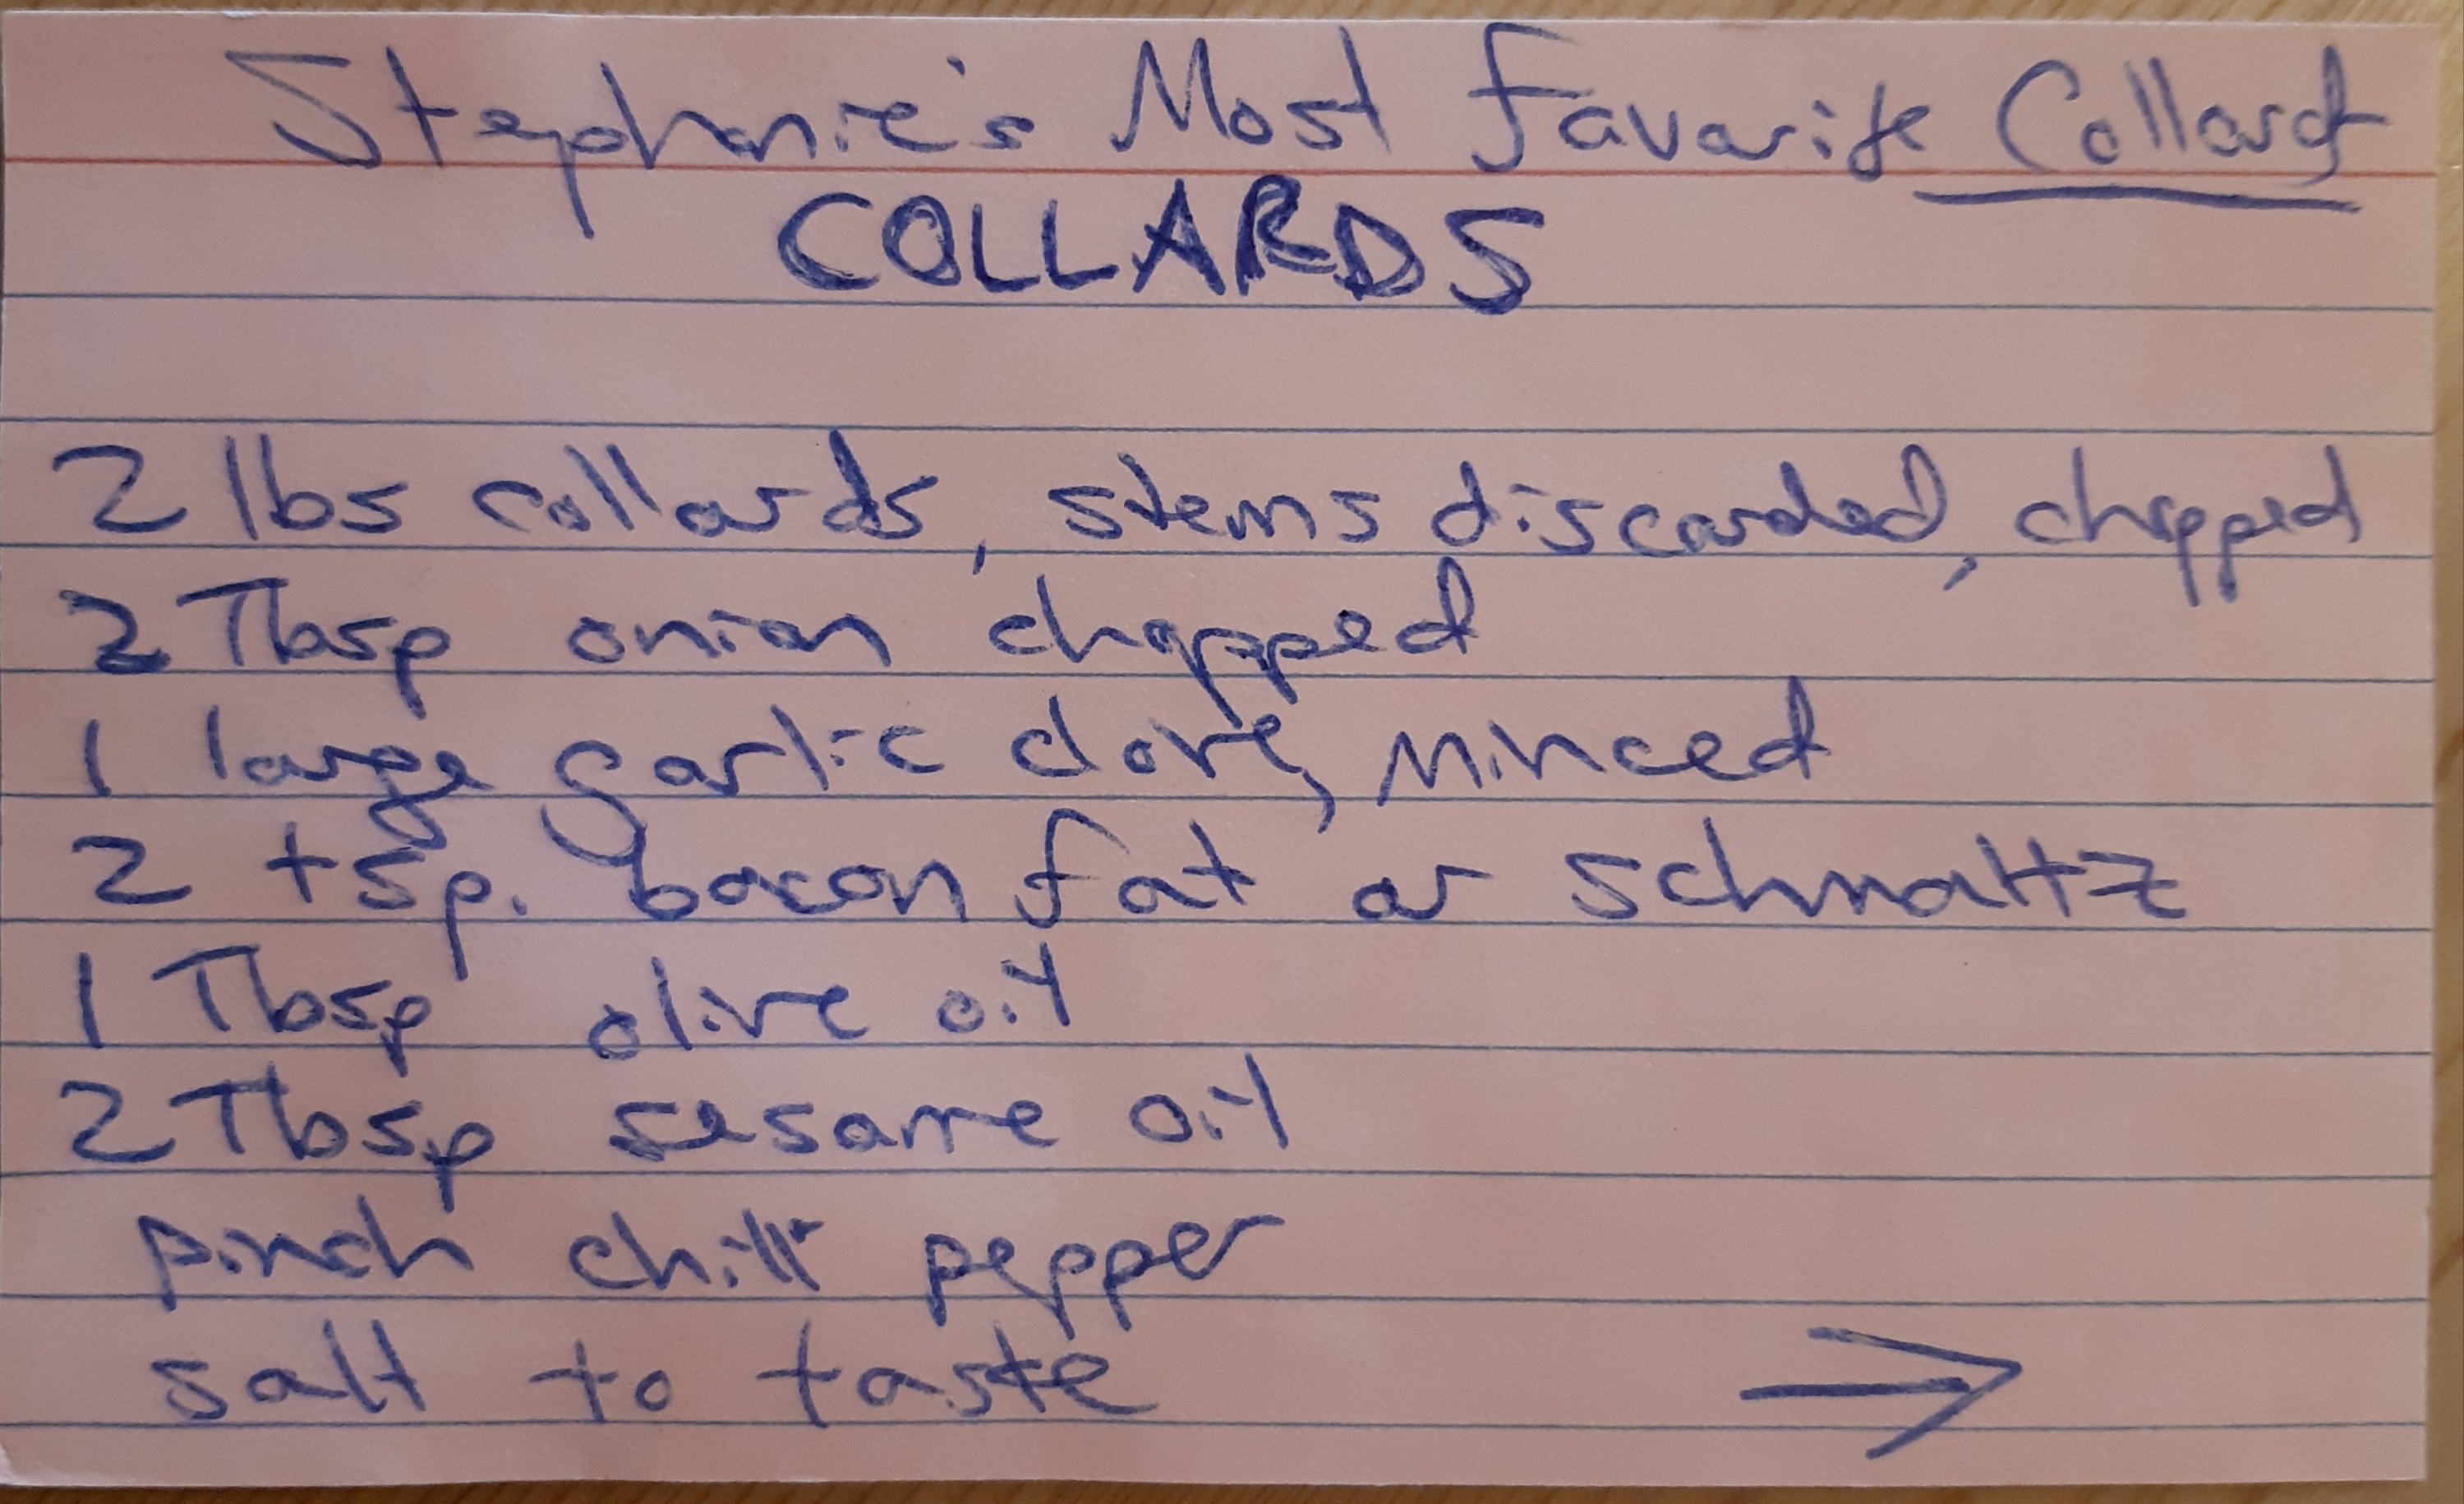 Stephanie's Most Favorite Collards
COLLARDS
2 lbs collards, stems discarded, chopped
2 Tbsp onion chopped
1 large garlic clove, minced
2 tsp. bacon fat or schmaltz
1 Tbsp olive oil
2 Tbsp sesame oil
pinch chili pepper
salt to taste
→